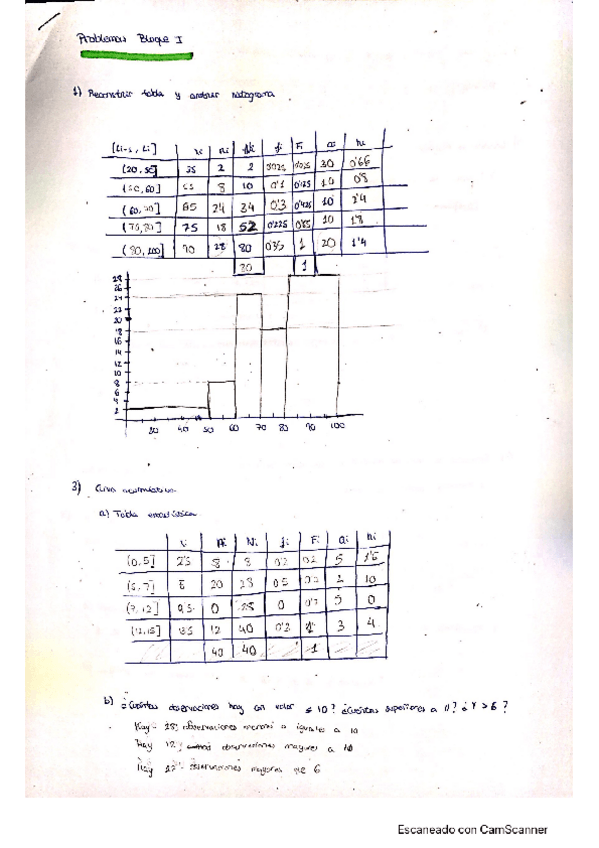 Problemas Bloque I
1) Reconstruir tabla y histograma
(Li-1, Li] xi ni Ni fi Fi ai hi
(20, 50] 35 2 2 0'025 30 0'66
(50, 60] 55 8 10 0'1 0'125 10 0'8
(60, 70] 65 24 34 0'3 0'425 10
(70, 80] 75 18 52 0'225 0'65 10 1'8
(80, 100] 90 28 80 0'35 1 20 1'4
80 1
28
26
24
22
20
18
16
14
12
10
8
6
2
40 50 60 70 80 90 100
3) Curva acumulativa
a) Tabla estadística
Ni fi Fi ai hi
(0, 5] 2'5 8 8 0'2 0'2 5 1'6
(5, 7] 6 20 28 0'5 2 10
(7, 12] 9'5 0 28 0 0'7 5 0
(12, 15] 12 40 1 3 4
40 40 1
b) ¿Cuántas observaciones hay con valor ≤ 10? ¿Cuántas superiores a 11? ¿Y > 6?
Hay 28 observaciones menores o iguales a 10
Hay 12 observaciones mayores a
Hay observaciones mayores que 6
Escaneado con CamScanner